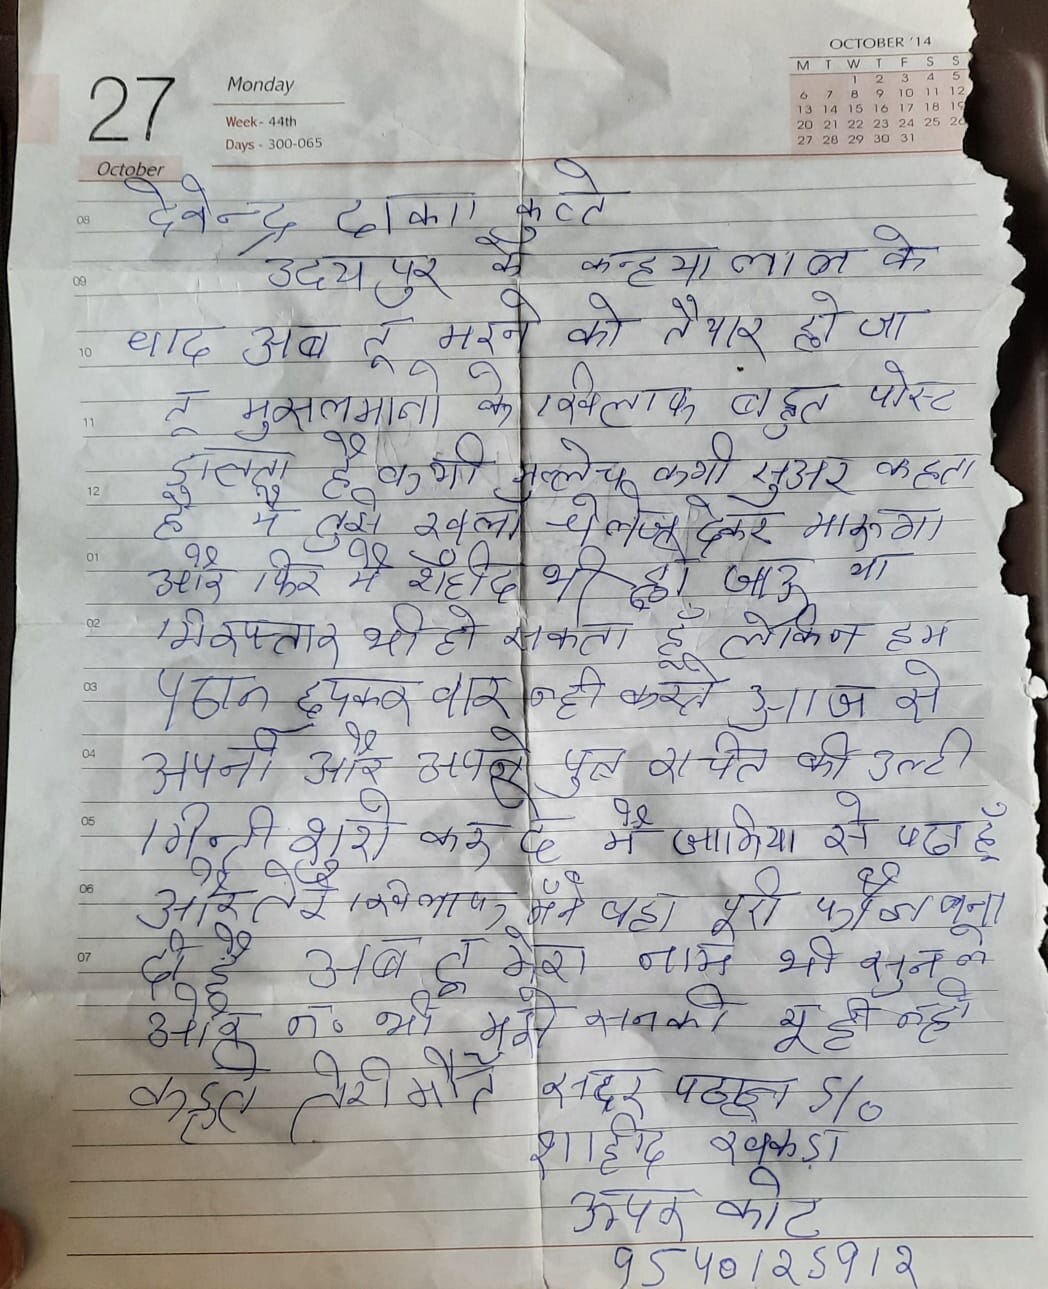 OCTOBER '14
M T W T F S S
1 2 3 4 5
6 7 8 9 10 11 12
13 14 15 16 17 18 19
20 21 22 23 24 25 26
27 28 29 30 31
27 Monday
Week - 44th
Days - 300-065
October
08 देवेन्द्र ढाका कुत्ते
09 उदयपुर के कन्हया लाल के
10 वाद अब तू मरने को तैयार हो जा
11 तू मुसलमानो के खिलाफ बहुत पोस्ट
12 डालता है कभी कभी सुअर कहता
है मै तुझे खुला चेलेंज देकर मारूगा
01 और फिर मै शहीद भी हो जाऊ या
02 गिरफ्तार भी हो सकता हूँ लेकिन हम
03 पठान छुपकर वार नही करते आज से
04 अपनी और अपने पुत्र की उल्टी
05 गिन्ती शुरो कर दे मै जामिया से पढा हूँ
06 और तेरे खिलाफ मैने वहा पूरी फौज बना
07 दी है अब तू मेरा नाम भी सुन ले
और न० भी मुझे सनकी यू ही नही
कहते तेरी मौत पठान S/o
शाहीद
ऊपर कोट
9540125912